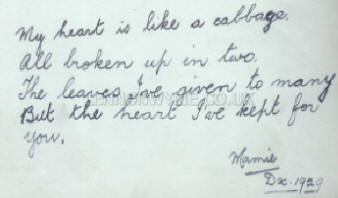 My heart is like a cabbage.
All broken up in two.
The leaves I've given to many
But the heart I've kept for
you.
Mamie
Dec. 1929
LENNONWYLIE.CO.UK